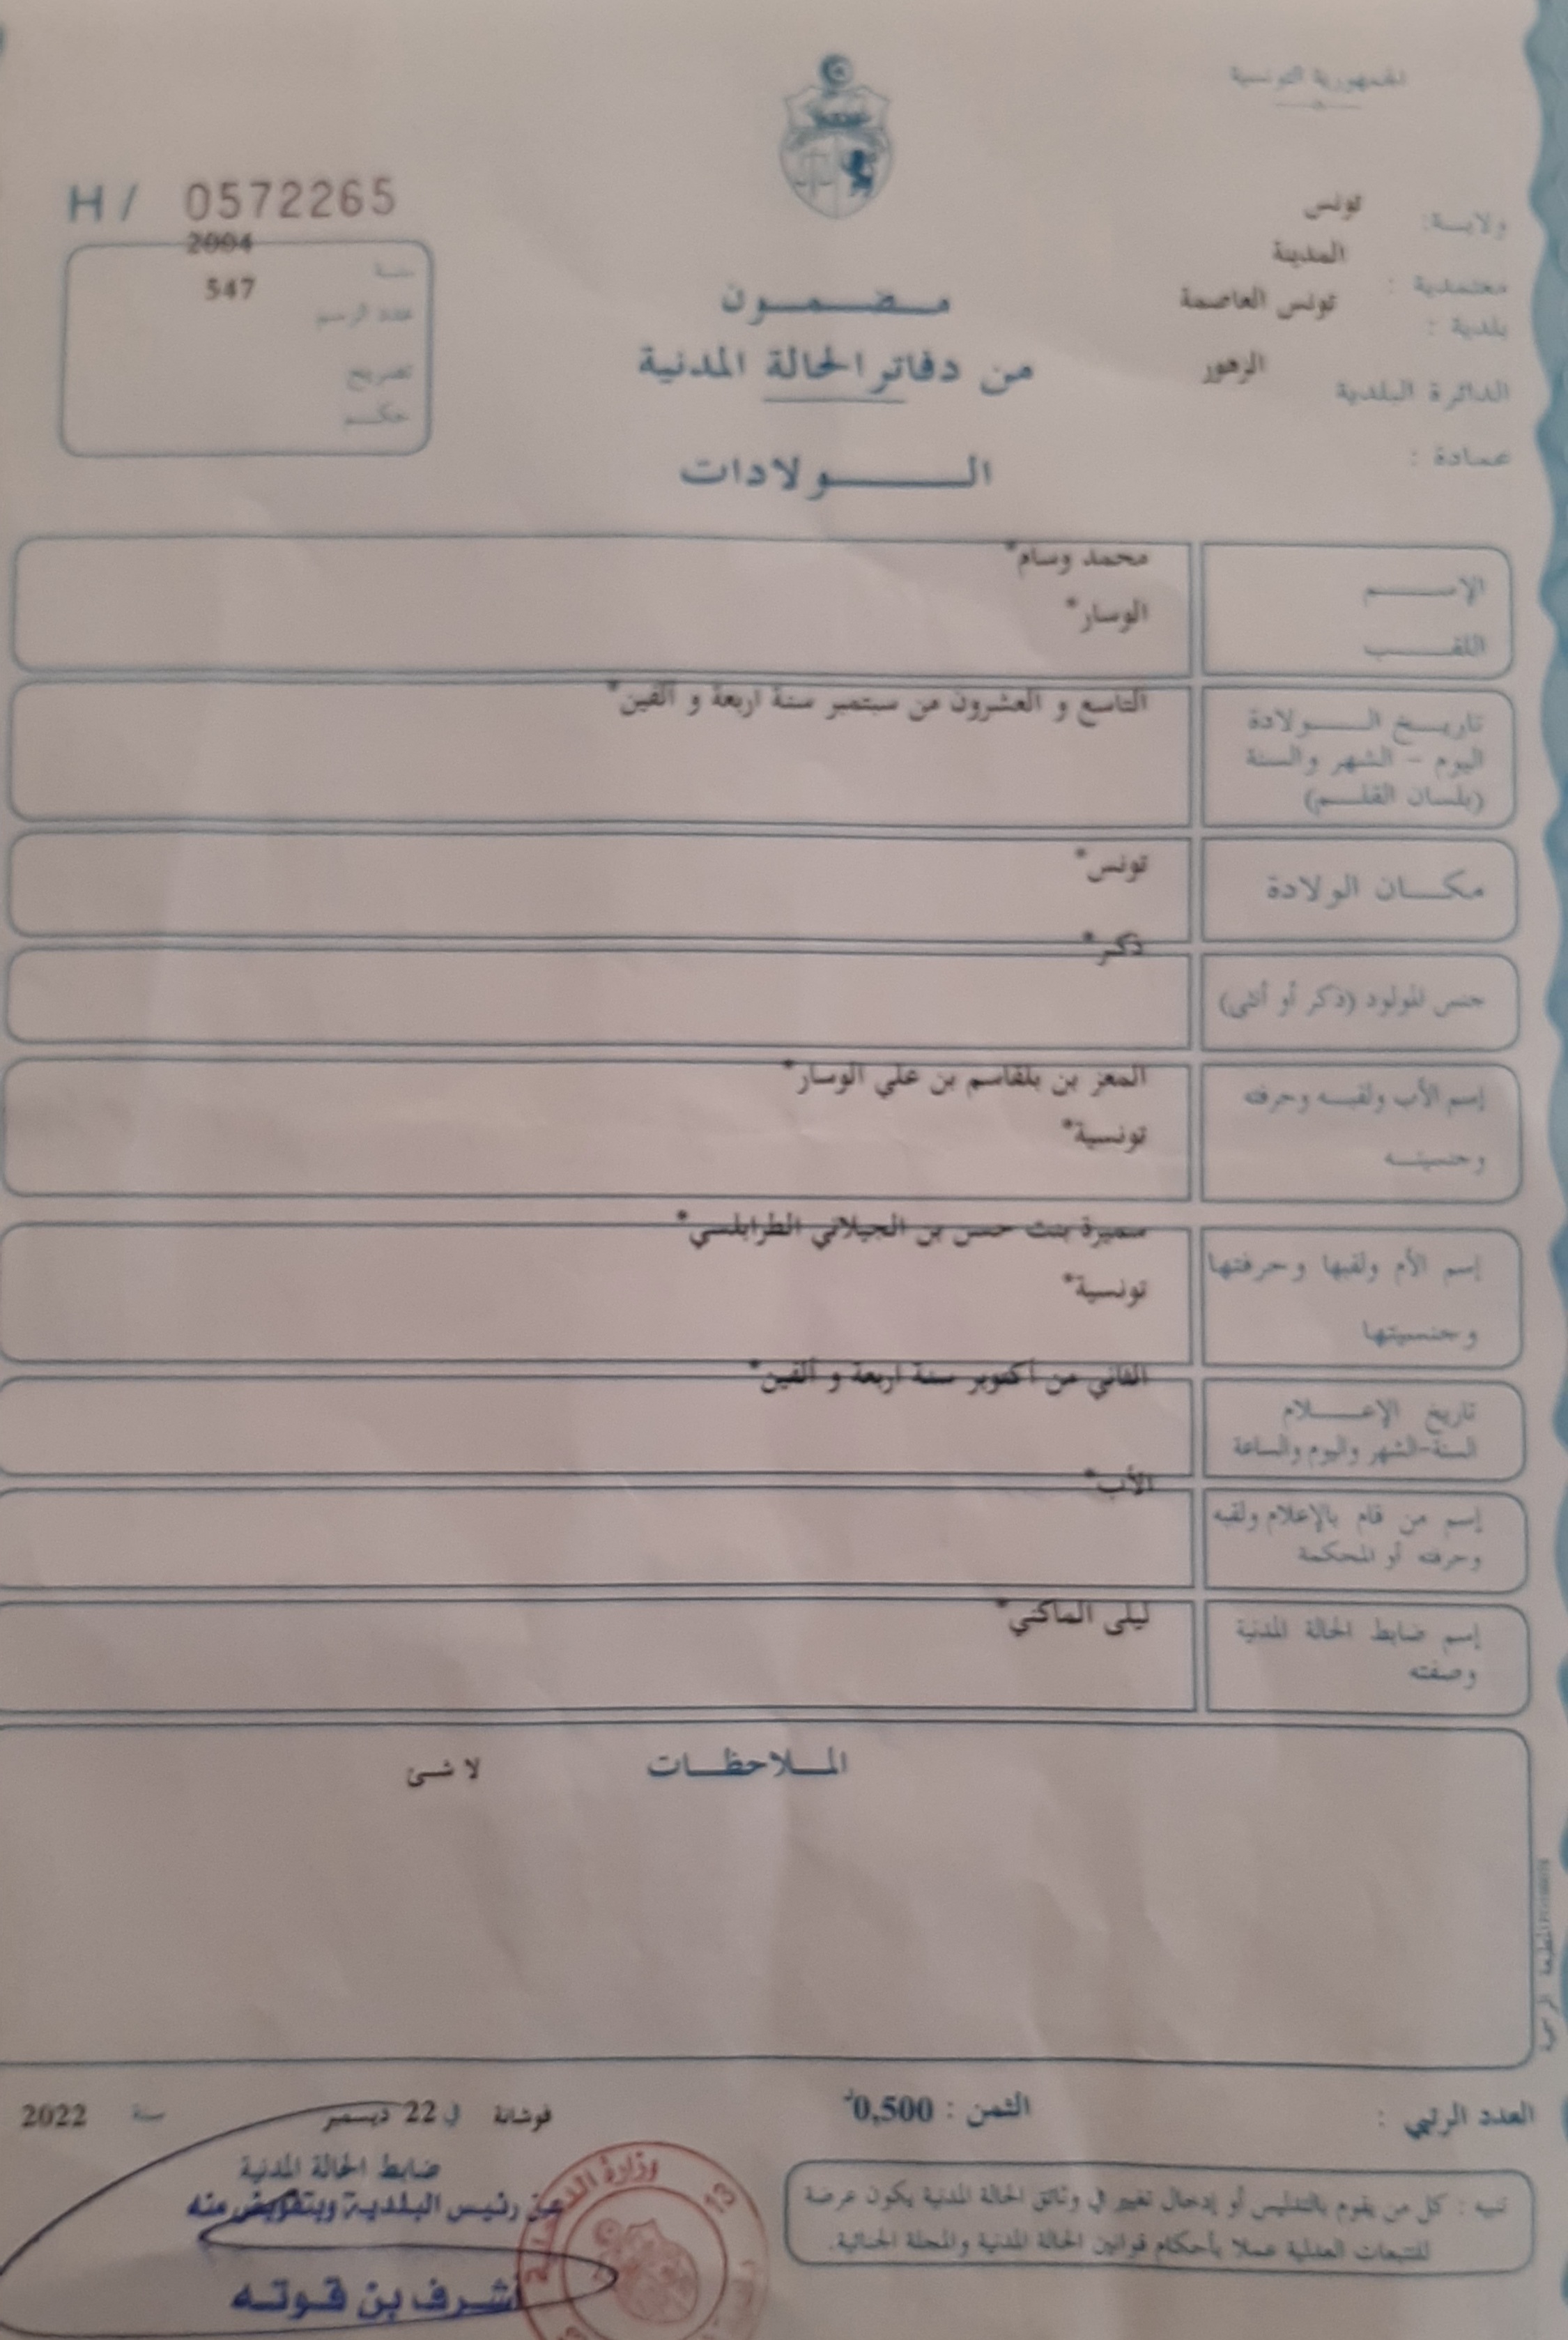 الجمهورية التونسية
H / 0572265
ولاية: تونس
معتمدية : المدينة
بلدية : تونس العاصمة
الدائرة البلدية الزهور
عمادة :
سنة 2004
عدد الرسم 547
تصريح
حكم
مضمون
من دفاتر الحالة المدنية
الولادات
الإسم محمد وسام*
اللقب الوسار*
تاريخ الولادة التاسع و العشرون من سبتمبر سنة اربعة و ألفين*
اليوم - الشهر والسنة
(بلسان القلم)
مكان الولادة تونس*
جنس المولود (ذكر أو أنثى) ذكر*
إسم الأب ولقبه وحرفته المعز بن بلقاسم بن علي الوسار*
وجنسيته تونسية*
إسم الأم ولقبها وحرفتها سميرة بنت حسن بن الجيلاني الطرابلسي*
وجنسيتها تونسية*
تاريخ الإعلام الثاني من أكتوبر سنة اربعة و ألفين*
السنة-الشهر واليوم والساعة
إسم من قام بالإعلام ولقبه الأب*
وحرفته أو المحكمة
إسم ضابط الحالة المدنية ليلى الماكني*
وصفته
الملاحظات لا شئ
المطبعة الرسمية
العدد الرتبي :
الثمن : 0,500د
فوشانة في 22 ديسمبر سنة 2022
ضابط الحالة المدنية
عن رئيس البلدية وبتفويض منه
أشرف بن قوته
وزارة
13
تنبيه : كل من يقوم بالتدليس أو إدخال تغيير في وثائق الحالة المدنية يكون عرضة
للتتبعات العدلية عملا بأحكام قوانين الحالة المدنية والمجلة الجنائية.